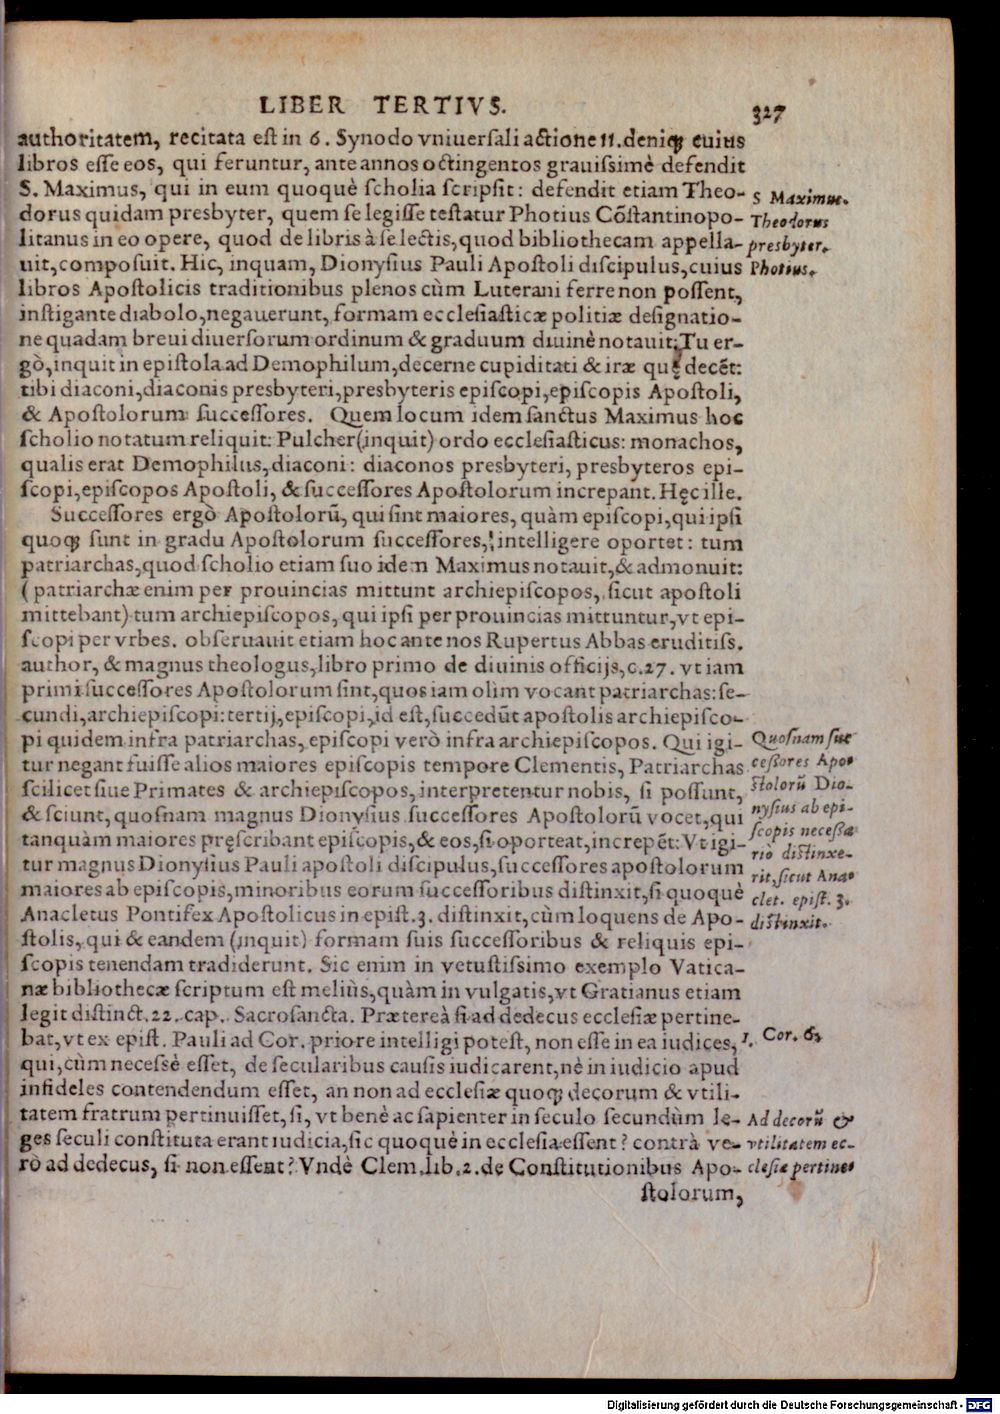 LIBER TERTIVS.
327
authoritatem, recitata est in 6. Synodo vniuersali actione 11. deniq; cuius
libros esse eos, qui feruntur, ante annos octingentos grauissimè defendit
S. Maximus, qui in eum quoquè scholia scripsit: defendit etiam Theo-
dorus quidam presbyter, quem se legisse testatur Photius Cōstantinopo-
litanus in eo opere, quod de libris à se lectis, quod bibliothecam appella-
uit, composuit. Hic, inquam, Dionysius Pauli Apostoli discipulus, cuius
libros Apostolicis traditionibus plenos cùm Luterani ferre non possent,
instigante diabolo, negauerunt, formam ecclesiasticæ politiæ designatio-
ne quadam breui diuersorum ordinum & graduum diuinè notauit: Tu er-
gò, inquit in epistola ad Demophilum, decerne cupiditati & iræ quę decēt:
tibi diaconi, diaconis presbyteri, presbyteris episcopi, episcopis Apostoli,
& Apostolorum successores. Quem locum idem sanctus Maximus hoc
scholio notatum reliquit: Pulcher (inquit) ordo ecclesiasticus: monachos,
qualis erat Demophilus, diaconi: diaconos presbyteri, presbyteros epi-
scopi, episcopos Apostoli, & successores Apostolorum increpant. Hęc ille.
Successores ergò Apostolorū, qui sint maiores, quàm episcopi, qui ipsi
quoq; sunt in gradu Apostolorum successores, intelligere oportet: tum
patriarchas, quod scholio etiam suo idem Maximus notauit, & admonuit:
(patriarchæ enim per prouincias mittunt archiepiscopos, sicut apostoli
mittebant) tum archiepiscopos, qui ipsi per prouincias mittuntur, vt epi-
scopi per vrbes. obseruauit etiam hoc ante nos Rupertus Abbas eruditiss.
author, & magnus theologus, libro primo de diuinis officijs, c. 27. vt iam
primi successores Apostolorum sint, quos iam olim vocant patriarchas: se-
cundi, archiepiscopi: tertij, episcopi, id est, succedūt apostolis archiepisco-
pi quidem infra patriarchas, episcopi verò infra archiepiscopos. Qui igi-
tur negant fuisse alios maiores episcopis tempore Clementis, Patriarchas
scilicet siue Primates & archiepiscopos, interpretentur nobis, si possunt,
& sciunt, quosnam magnus Dionysius successores Apostolorū vocet, qui
tanquàm maiores pręscribant episcopis, & eos, si oporteat, increpēt: Vt igi-
tur magnus Dionysius Pauli apostoli discipulus, successores apostolorum
maiores ab episcopis, minoribus eorum successoribus distinxit, si quoquè
Anacletus Pontifex Apostolicus in epist. 3. distinxit, cùm loquens de Apo-
stolis, qui & eandem (inquit) formam suis successoribus & reliquis epi-
scopis tenendam tradiderunt. Sic enim in vetustissimo exemplo Vatica-
næ bibliothecæ scriptum est meliùs, quàm in vulgatis, vt Gratianus etiam
legit distinct. 22. cap. Sacrosancta. Prætereà si ad dedecus ecclesiæ pertine-
bat, vt ex epist. Pauli ad Cor. priore intelligi potest, non esse in ea iudices,
qui, cùm necessè esset, de secularibus causis iudicarent, nè in iudicio apud
infideles contendendum esset, an non ad ecclesiæ quoq; decorum & vtili-
tatem fratrum pertinuisset, si, vt benè ac sapienter in seculo secundùm le-
ges seculi constituta erant iudicia, sic quoquè in ecclesia essent? contrà ve-
rò ad dedecus, si non essent? Vndè Clem. lib. 2. de Constitutionibus Apo-
stolorum,
S Maximus.
Theodorus
presbyter.
Photius.
Quosnam suc
cessores Apo-
stolorū Dio-
nysius ab epi-
scopis necessa
riò distinxe-
rit, sicut Ana-
clet. epist. 3.
distinxit.
1. Cor. 6.
Ad decorū &
vtilitatem ec-
clesiæ pertine-
Digitalisierung gefördert durch die Deutsche Forschungsgemeinschaft - DFG